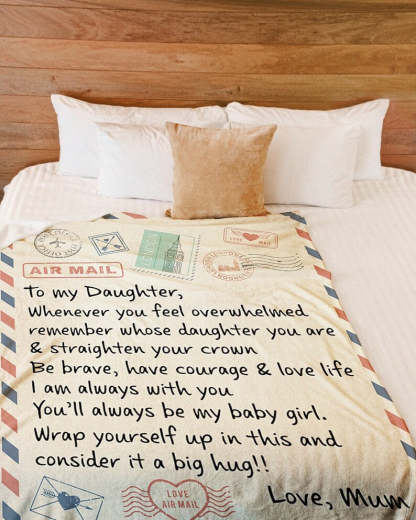 AIR MAIL
To my Daughter,
Whenever you feel overwhelmed
remember whose daughter you are
& straighten your crown
Be brave, have courage & love life
I am always with you
You'll always be my baby girl.
Wrap yourself up in this and
consider it a big hug!!
Love, Mum
LOVE
AIR MAIL